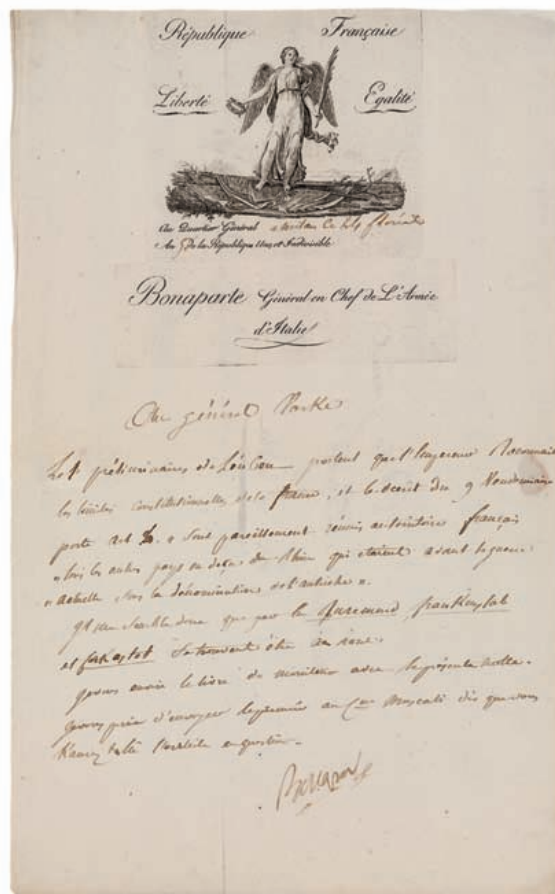 République Française
Liberté Egalité
Au Quartier Général a milan ce 24 floréal
An 5 de la République Une et Indivisible
Bonaparte Général en Chef de L'Armée
d'Italie
Au général
Les préliminaires de portent que l'empereur
les limites constitutionnelles de la france, et le décret du 9 Vendemiaire
porte art « Sont pareillement réunis au territoire français
« tous les autres pays en deça du Rhin qui étaient avant la guerre
« actuelle sous la dénomination de l'autriche ».
Il me semble donc que par là
et se trouvent être
je vous envoie le livre du moniteur avec la présente notte.
je vous prie d'envoyer au Cen Moscati dès que vous
l'article en question.